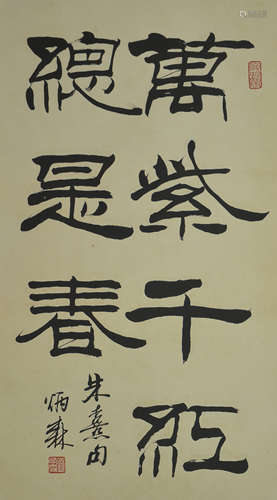 萬紫千紅
總是春
朱熹句
炳森